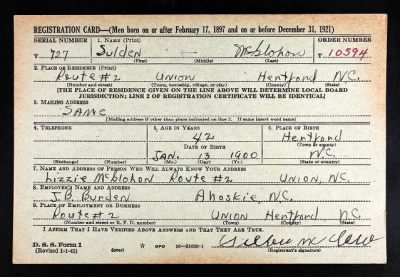 REGISTRATION CARD—(Men born on or after February 17, 1897 and on or before December 31, 1921)
SERIAL NUMBER 1. NAME (Print) ORDER NUMBER
T 727 Sulden — McGlohon T 10594
(First) (Middle) (Last)
2. PLACE OF RESIDENCE (Print)
Route #2 Union Hertford N.C.
(Number and street) (Town, township, village, or city) (County) (State)
[THE PLACE OF RESIDENCE GIVEN ON THE LINE ABOVE WILL DETERMINE LOCAL BOARD
JURISDICTION; LINE 2 OF REGISTRATION CERTIFICATE WILL BE IDENTICAL]
3. MAILING ADDRESS
Same
(Mailing address if other than place indicated on line 2. If same insert word same)
4. TELEPHONE 5. AGE IN YEARS 6. PLACE OF BIRTH
42 Hertford
DATE OF BIRTH (Town or county)
Jan. 13 1900 N.C.
(Exchange) (Number) (Mo.) (Day) (Yr.) (State or country)
7. NAME AND ADDRESS OF PERSON WHO WILL ALWAYS KNOW YOUR ADDRESS
Lizzie McGlohon Route #2 Union, N.C.
8. EMPLOYER'S NAME AND ADDRESS
J.B. Burden Ahoskie, N.C.
9. PLACE OF EMPLOYMENT OR BUSINESS
Route #2 Union Hertford N.C.
(Number and street or R. F. D. number) (Town) (County) (State)
I AFFIRM THAT I HAVE VERIFIED ABOVE ANSWERS AND THAT THEY ARE TRUE.
D. S. S. Form 1
(Revised 1-1-42) (over) GPO 16-21630-1
(Registrant's signature)